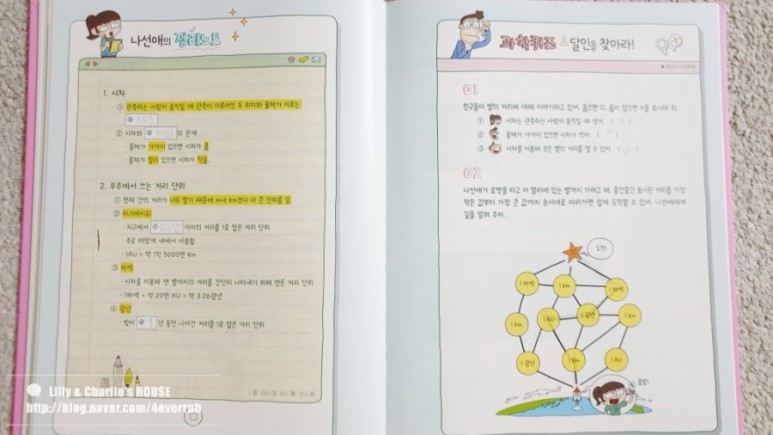 나선애의 정리노트
1. 시차
① 관측하는 사람이 움직일 때 관측이 이루어진 두 위치와 물체가 이루는
② 시차와 의 관계
· 물체가 가까이 있으면 시차가 큼
· 물체가 멀리 있으면 시차가 작음
2. 우주에서 쓰는 거리 단위
① 천체 간의 거리가 너무 멀기 때문에 m나 km보다 더 큰 단위를 씀
② AU(에이유)
· 지구에서 까지의 거리를 1로 잡은 거리 단위
· 주로 태양계 내에서 사용함
· 1AU = 약 1억 5000만 km
③ 파섹
· 시차를 이용해 먼 별까지의 거리를 간단히 나타내기 위해 만든 거리 단위
· 1파섹 = 약 20만 AU = 약 3.26광년
④ 광년
· 빛이 1 년 동안 나아간 거리를 1로 잡은 거리 단위
과학퀴즈 달인을 찾아라!
01
친구들이 별의 거리에 대해 이야기하고 있어. 옳으면 O, 옳지 않으면 X를 표시해 줘.
① 시차는 관측하는 사람이 움직일 때 생겨. ( )
② 물체가 가까이 있으면 시차가 작아. ( )
③ 시차를 이용해 모든 별의 거리를 알 수 있어. ( )
02
나선애가 로켓을 타고 저 멀리에 있는 별까지 가려고 해. 중간중간 표시된 거리를 가장
작은 값부터 가장 큰 값까지 순서대로 따라가면 쉽게 도착할 수 있어. 나선애에게
길을 알려 주자.
도착!
1파섹 1km 1파섹
1km 1AU 1광년 1km
1광년 1km 1AU
출발!
Lilly & Charlie's HOUSE
http://blog.naver.com/4everrub